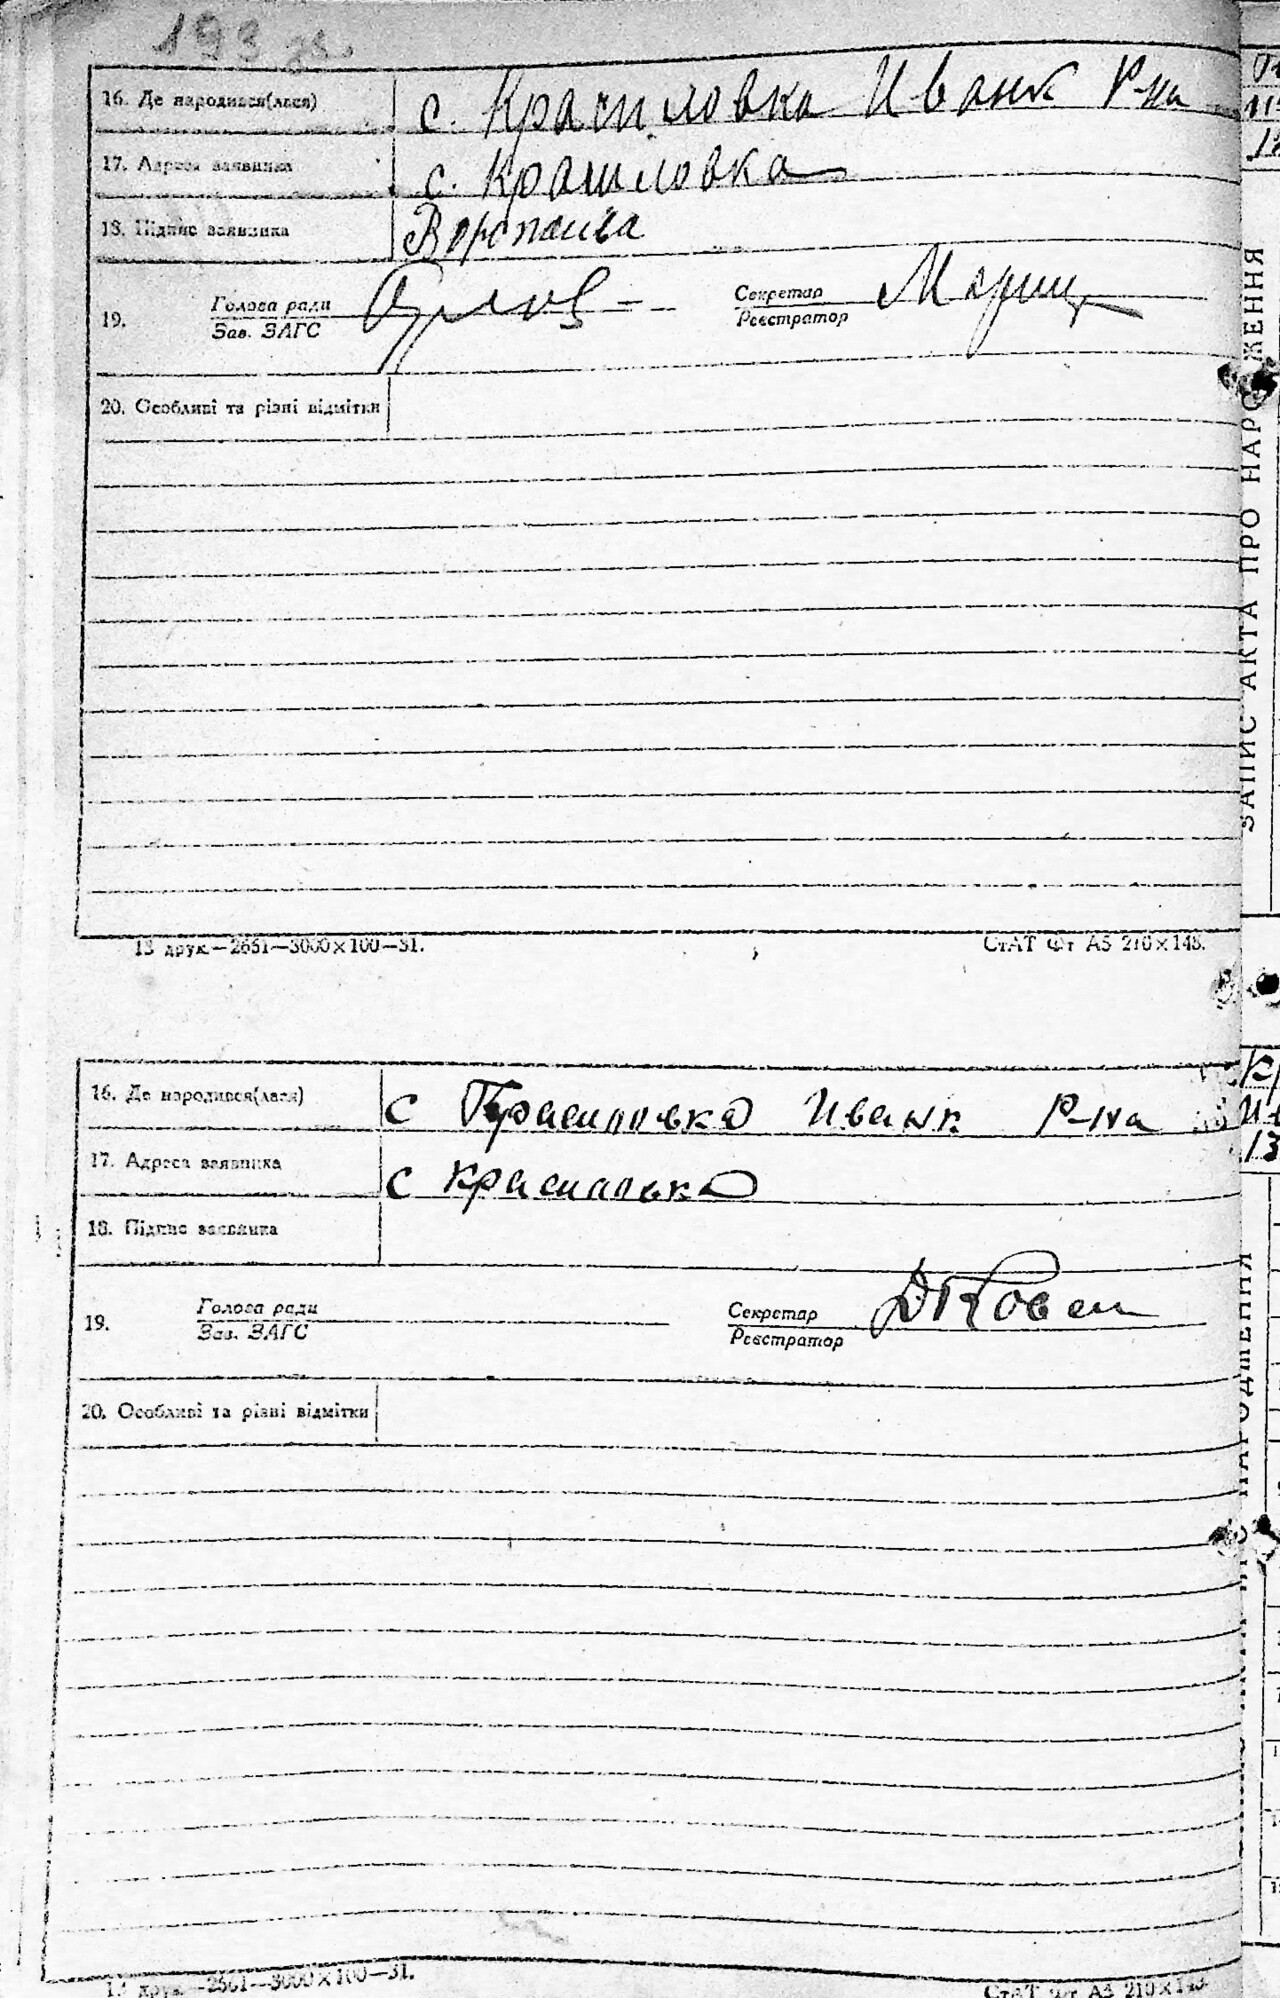 193 зв.
16. Де народився(лася) с. Красиловка Иванк Р-на
17. Адреса заявника с. Красиловка
18. Підпис заявника
19. Голова ради Секретар
Зав. ЗАГС Реєстратор
20. Особливі та різні відмітки
13 друк.—2661—3000×100—31. СтАТ Фт А5 210×148.
16. Де народився(лася) с Красиловка Иванк Р-на
17. Адреса заявника с Красиловка
18. Підпис заявника
19. Голова ради Секретар
Зав. ЗАГС Реєстратор
20. Особливі та різні відмітки
13 друк.—2661—3000×100—31. СтАТ Фт А5 210×148
ЗАПИС АКТА ПРО НАРОДЖЕННЯ
НАРОДЖЕННЯ